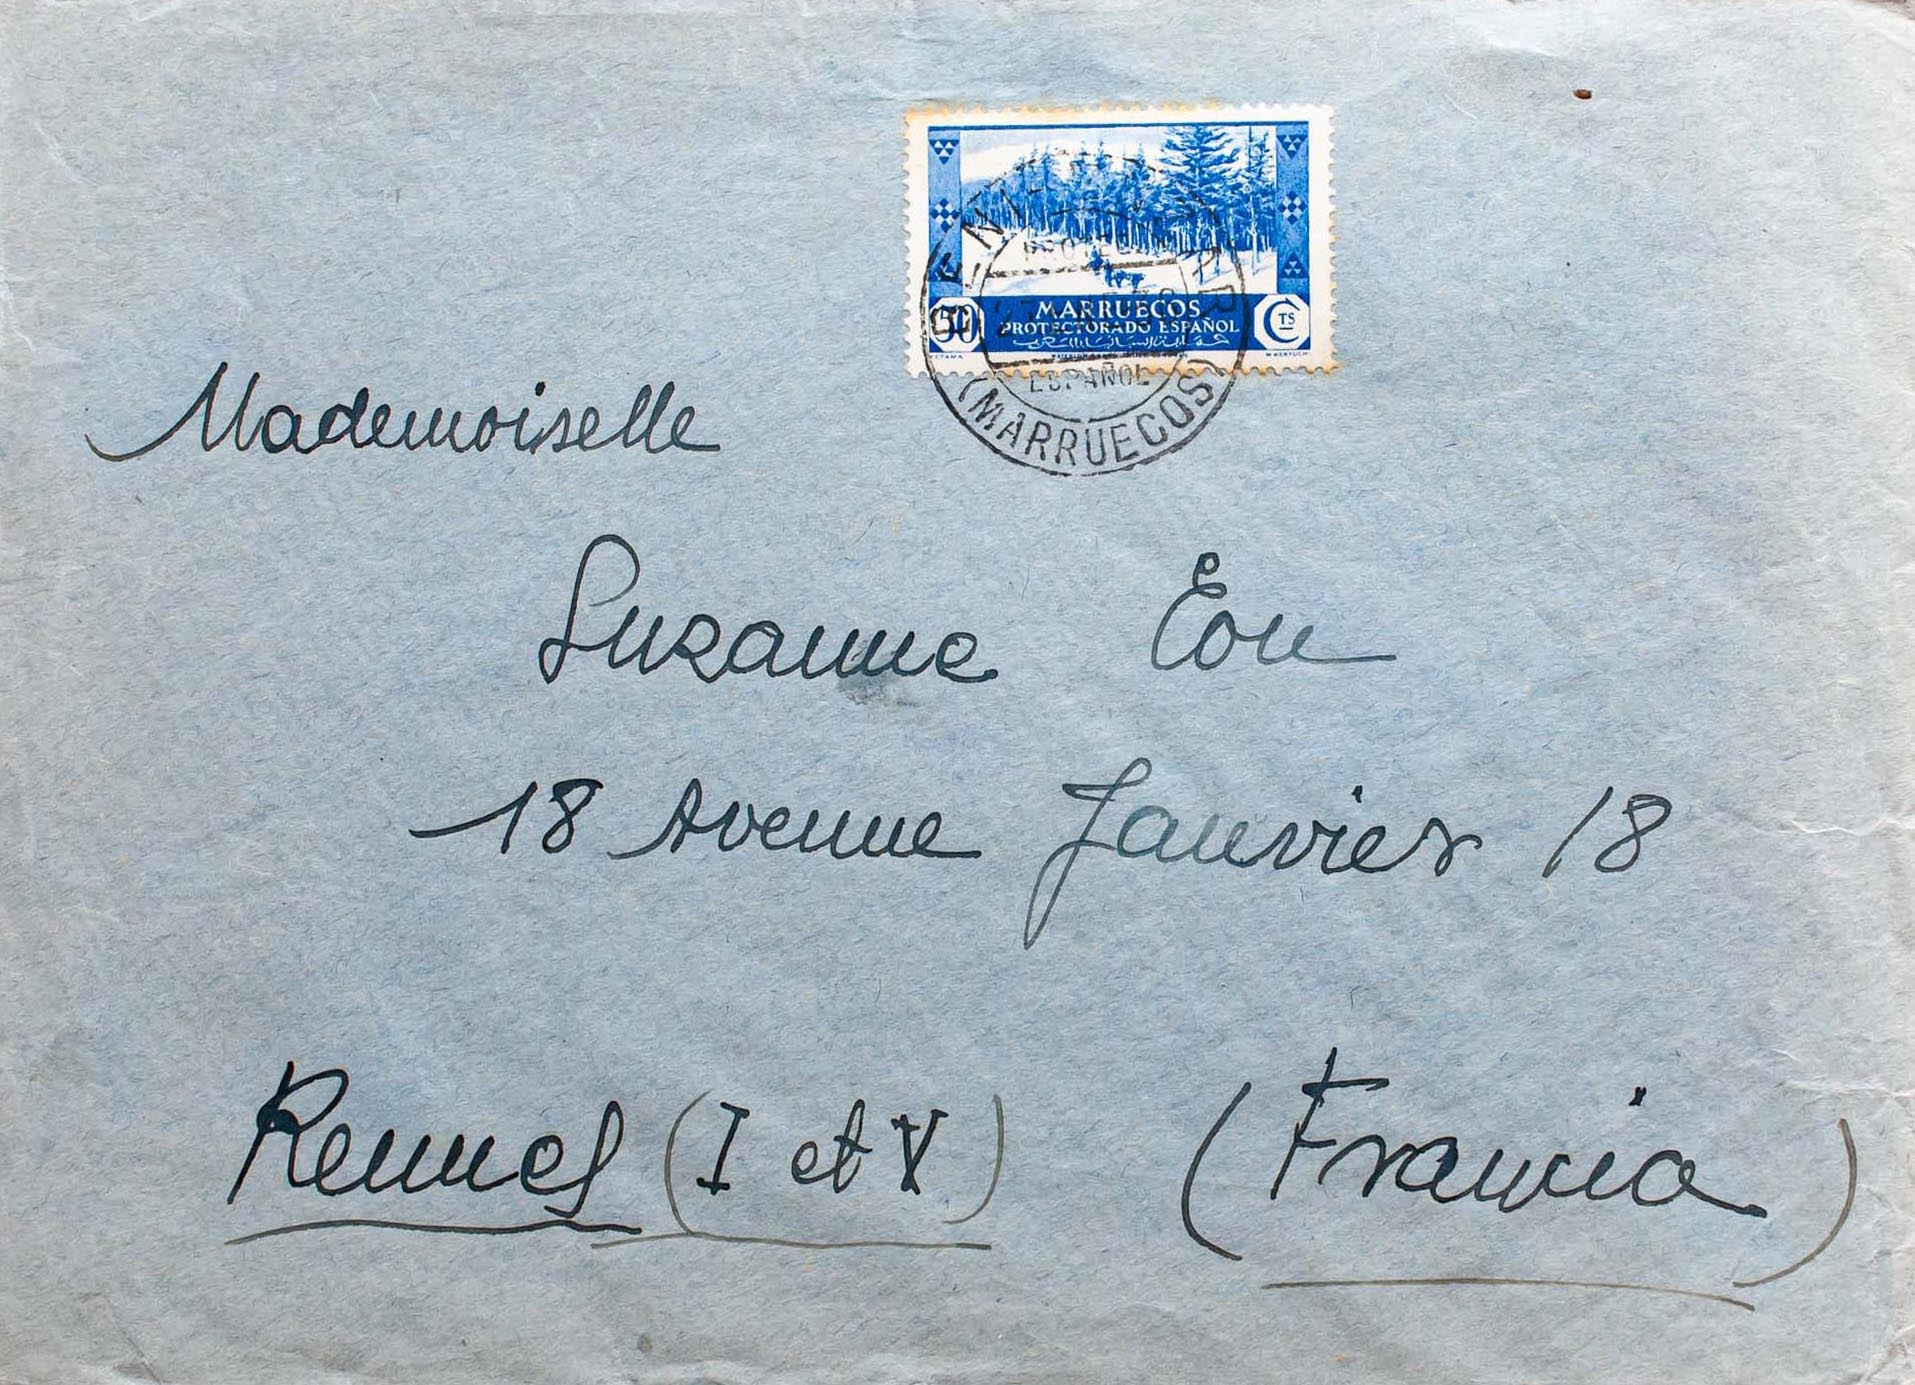 50
MARRUECOS
CTS
PROTECTORADO ESPAÑOL
ESPAÑOL
(MARRUECOS)
Mademoiselle
Suzanne Eon
18 Avenue Janvier 18
Rennes (I et V) (Francia)